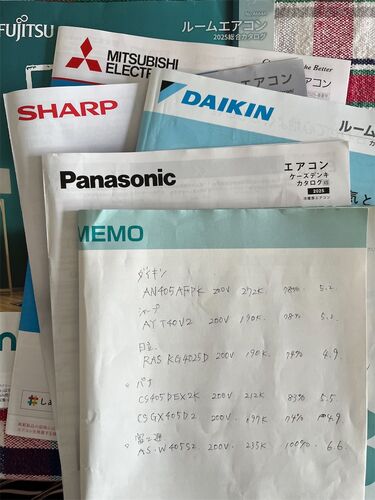 FUJITSU
ルームエアコン
2025総合カタログ
MITSUBISHI
ELECTRIC
for the Better
エアコン
SHARP
DAIKIN
ルーム
カタ
Panasonic
エアコン
ケーズデンキ
カタログ
2025
気と
MEMO
ダイキン
AN405AFPK 200V 272K 78% 5.2
シャープ
AY T40V2 200V 190K 78% 5.2
日立
RAS KG4025D 200V 190K 74% 4.9
パナ
CS405DEX2K 200V 212K 83% 5.5
CSGX405D2 200V 197K 74% 4.9
富士通
AS-W405S2 200V 235K 100% 6.6